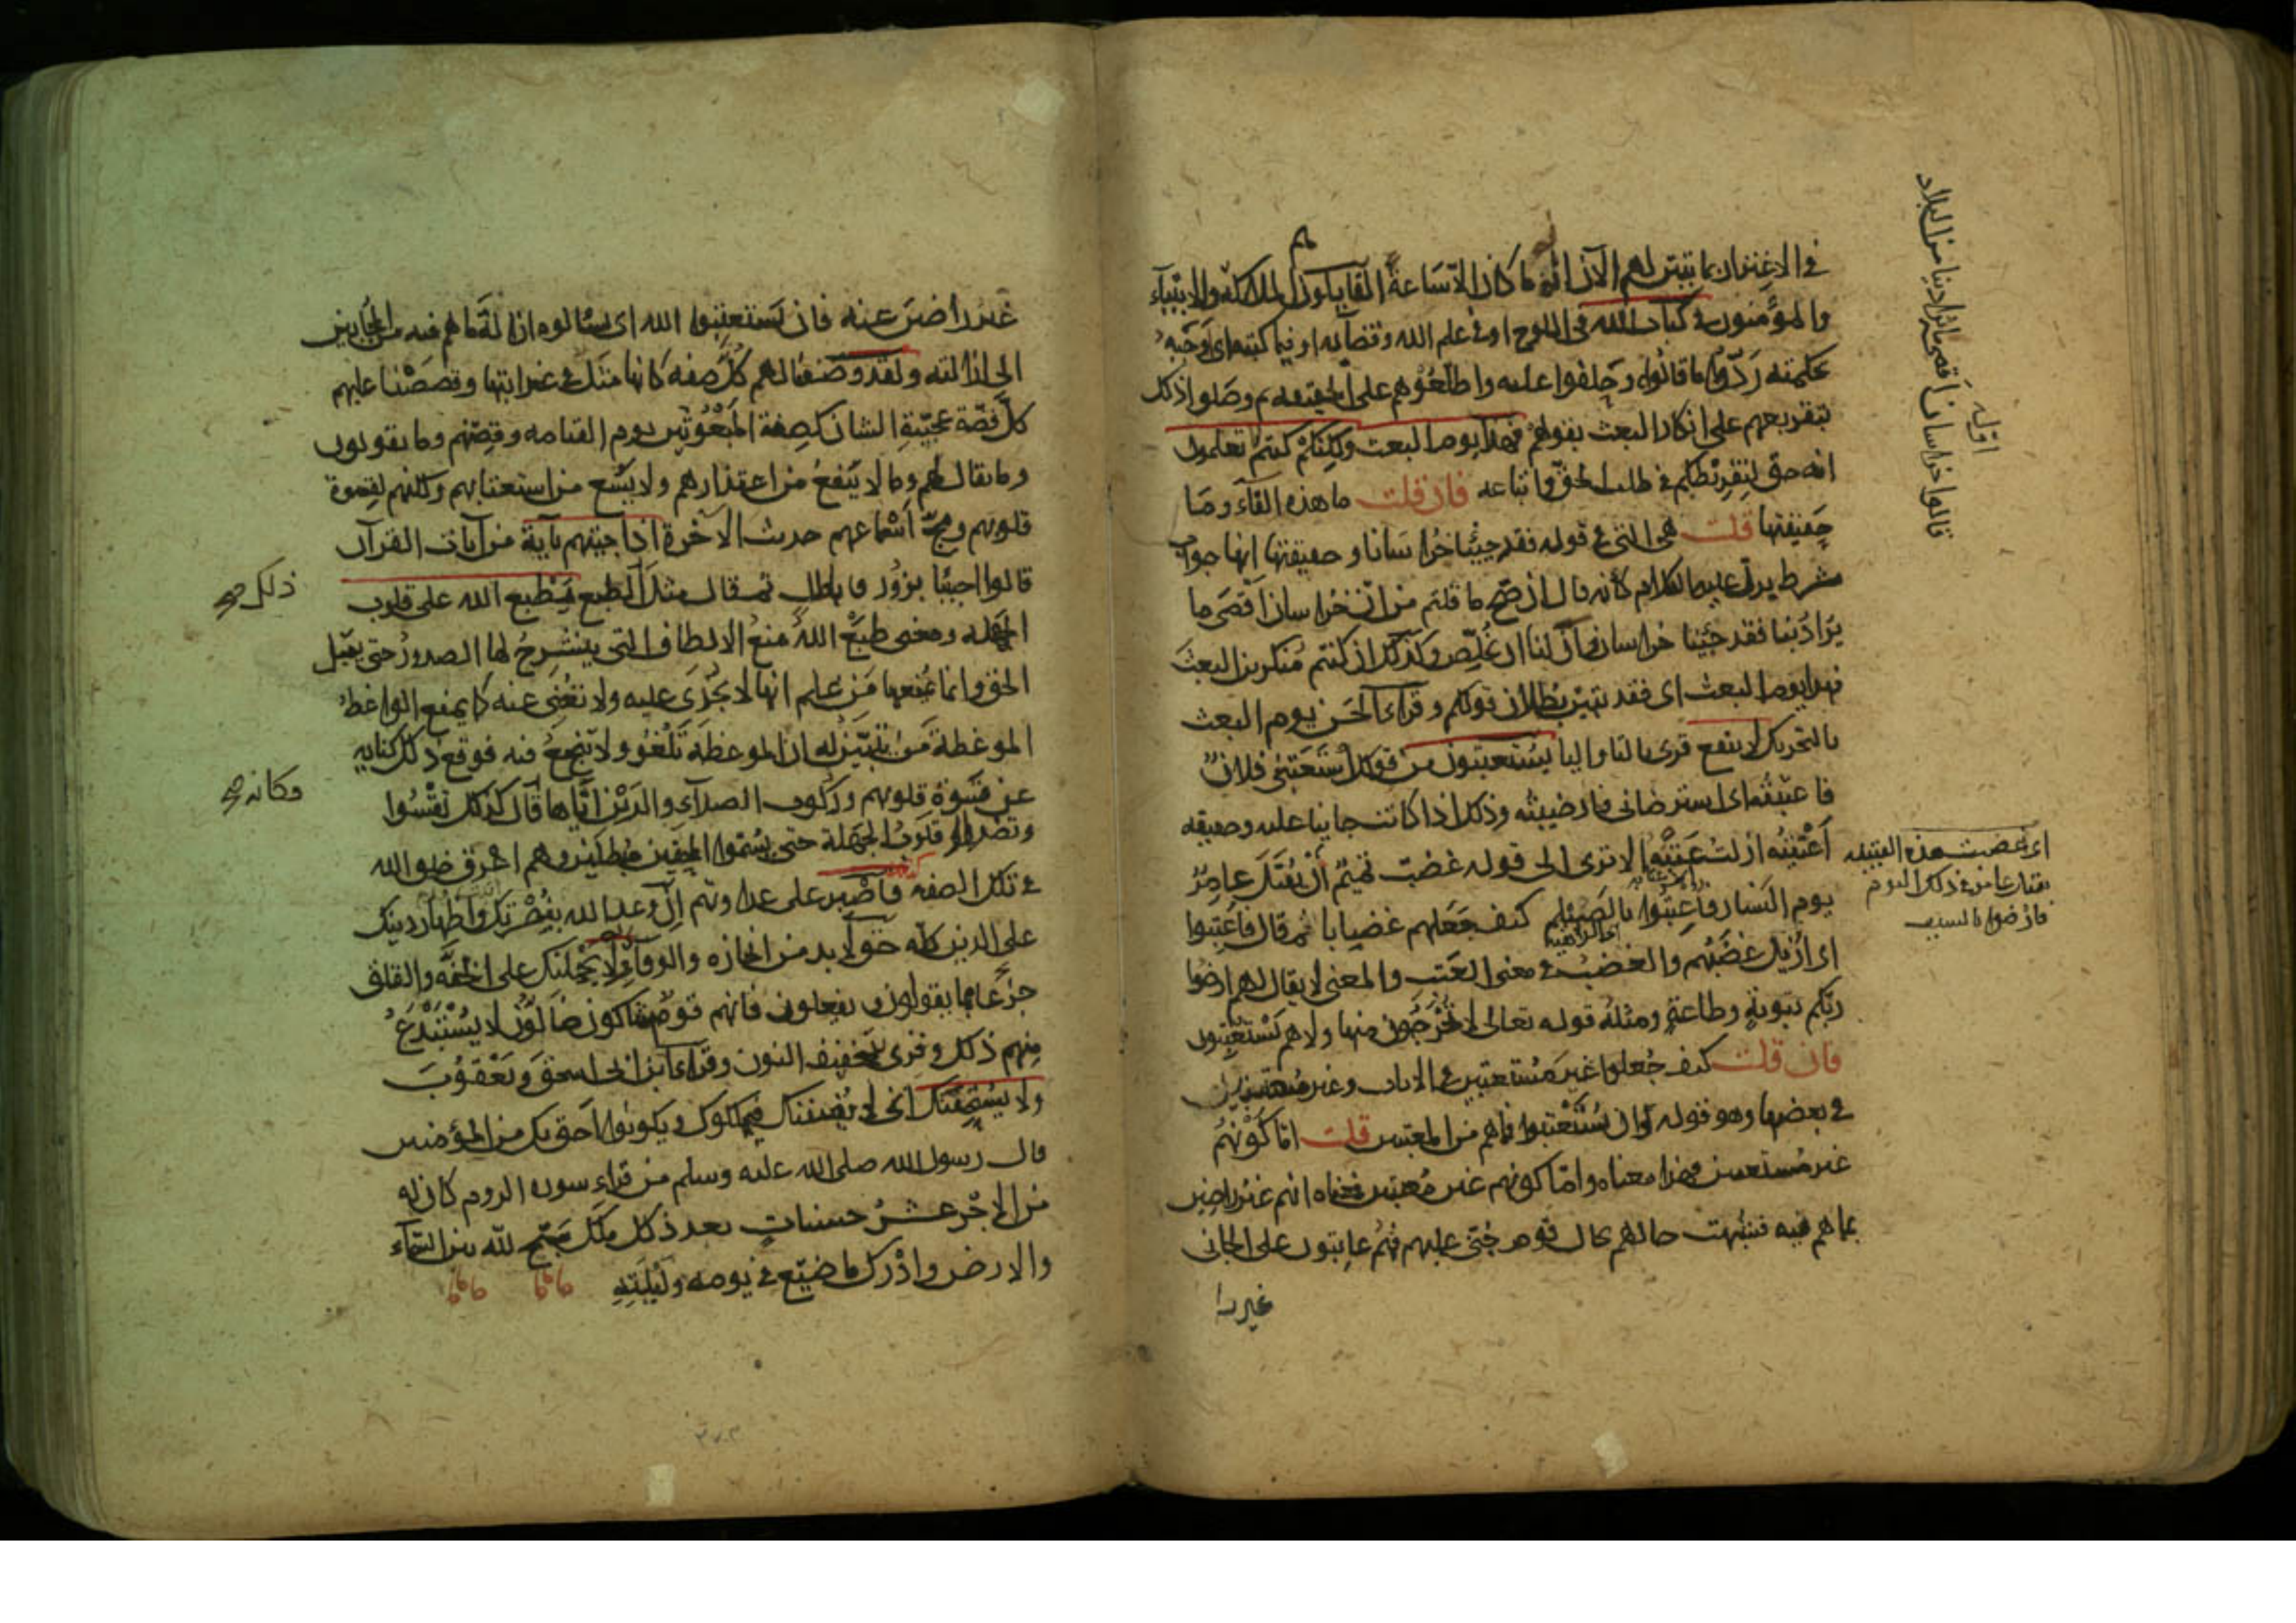 في الاغترار بما تبين لهم الآن انه ما كان الا ساعة القايلون هم الملائكة والانبياء
والمؤمنون في كتاب الله في اللوح او في علم الله وقضائه او فيما كتبه اي اوجبه
بحكمته ردوا ما قالوه وحلفوا عليه واطلعوهم على الحقيقة ثم وصلوا ذلك
بتقريعهم على انكار البعث بقولهم فهذا يوم البعث ولكنكم كنتم لا تعلمون
انه حق لتفريطكم في طلب الحق واتباعه فان قلت ما هذه الفاء وما
حقيقتها قلت هي التي في قوله فقد جئنا خراسانا وحقيقتها انها جواب
شرط يدل عليه الكلام كانه قال ان صح ما قلتم من ان خراسان اقصى ما
يراد بنا فقد جئنا خراسان وآن لنا ان نخلص وكذلك ان كنتم منكرين البعث
فهذا يوم البعث اي فقد تبين بطلان قولكم وقراء الحسن يوم البعث
بالتحريك لا ينفع قرئ بالتا واليا يستعتبون من قولك استعتبني فلان
فاعتبته اي استرضاني فارضيته وذلك اذا كانت جانيا عليه وحقيقة
اعتبته ازلت عتبه الا ترى الى قوله غضبت تميم ان تقتل عامر
يوم النسار فاعتبوا بالصيلم كيف جعلهم غضابا ثم قال فاعتبوا
اي ازيل غضبهم والغضب في معنى العتب والمعنى لا يقال لهم ارضوا
ربكم بتوبة وطاعة ومثله قوله تعالى لا يخرجون منها ولا هم يستعتبون
فان قلت كيف جعلوا غير مستعتبين في الايات وغير معتبين
في بعضها وهو قوله وان يستعتبوا فما هم من المعتبين قلت اما كونهم
غير مستعتبين فهذا معناه واما كونهم غير معتبين فمعناه انهم غير راضين
بما هم فيه فشبهت حالهم بحال قوم جني عليهم فهم عاتبون على الجاني
غير را
قالوا خراسان اقصى ما يراد بنا من البلاد
اوله
اي غضبت هذه القبيلة
بقتل عامر في ذلك اليوم
فارضوا بالسيف
غير راضين عنه فان يستعتبوا الله اي يسالوه ازالة ما هم فيه من المجابين
الى ازالته ولقد وصفنا لهم كل صفة كانها مثل في غرابتها وقصصنا عليهم
كل قصة عجيبة الشان كصفة المبعوثين يوم القيامه وقصتهم وما يقولون
وما يقال لهم وما لا ينفع من اعتذارهم ولا يسمع من استعتابهم ولكنهم لقسوة
قلوبهم ومج اسماعهم حديث الآخرة اذا جئتهم بآية من آيات القرآن
قالوا جئتنا بزور وباطل ثم قال مثل ذلك الطبع يطبع الله على قلوب
الجهلة ومعنى طبع الله منع الالطاف التي ينشرح لها الصدور حتى يقبل
الحق وانما يمنعها من علم انها لا تجدي عليه ولا تغني عنه كما يمنع الواعظ
الموعظة من يتبين له ان الموعظة تلغو ولا تنجع فيه فوقع ذلك كناية
عن قسوة قلوبهم وركوب الصداء والرين اياها فكانه قال كذلك تقسوا
وتصدأ قلوب الجهلة حتى يسموا المحقين مبطلين وهم اعرق خلق الله
في تلك الصفة فاصبر على عداوتهم ان وعد الله بنصرتك واظهار دينك
على الدين كله حق لا بد من انجازه والوفاء به ولا يحملنك على الخفة والقلق
جزعا مما يقولون ويفعلون فانهم قوم شاكون ضالون لا يستبدع
منهم ذلك وقرئ بتخفيف النون وقراء ابن ابي اسحق ويعقوب
ولا يستحقنك اي لا يفتننك فيملكوك ويكونوا احق بك من المؤمنين
قال رسول الله صلى الله عليه وسلم من قراء سورة الروم كان له
من الاجر عشر حسنات بعدد كل ملك سبح لله بين السماء
والارض وادرك ما ضيع في يومه وليلته
ذلك صح
فكانه صح